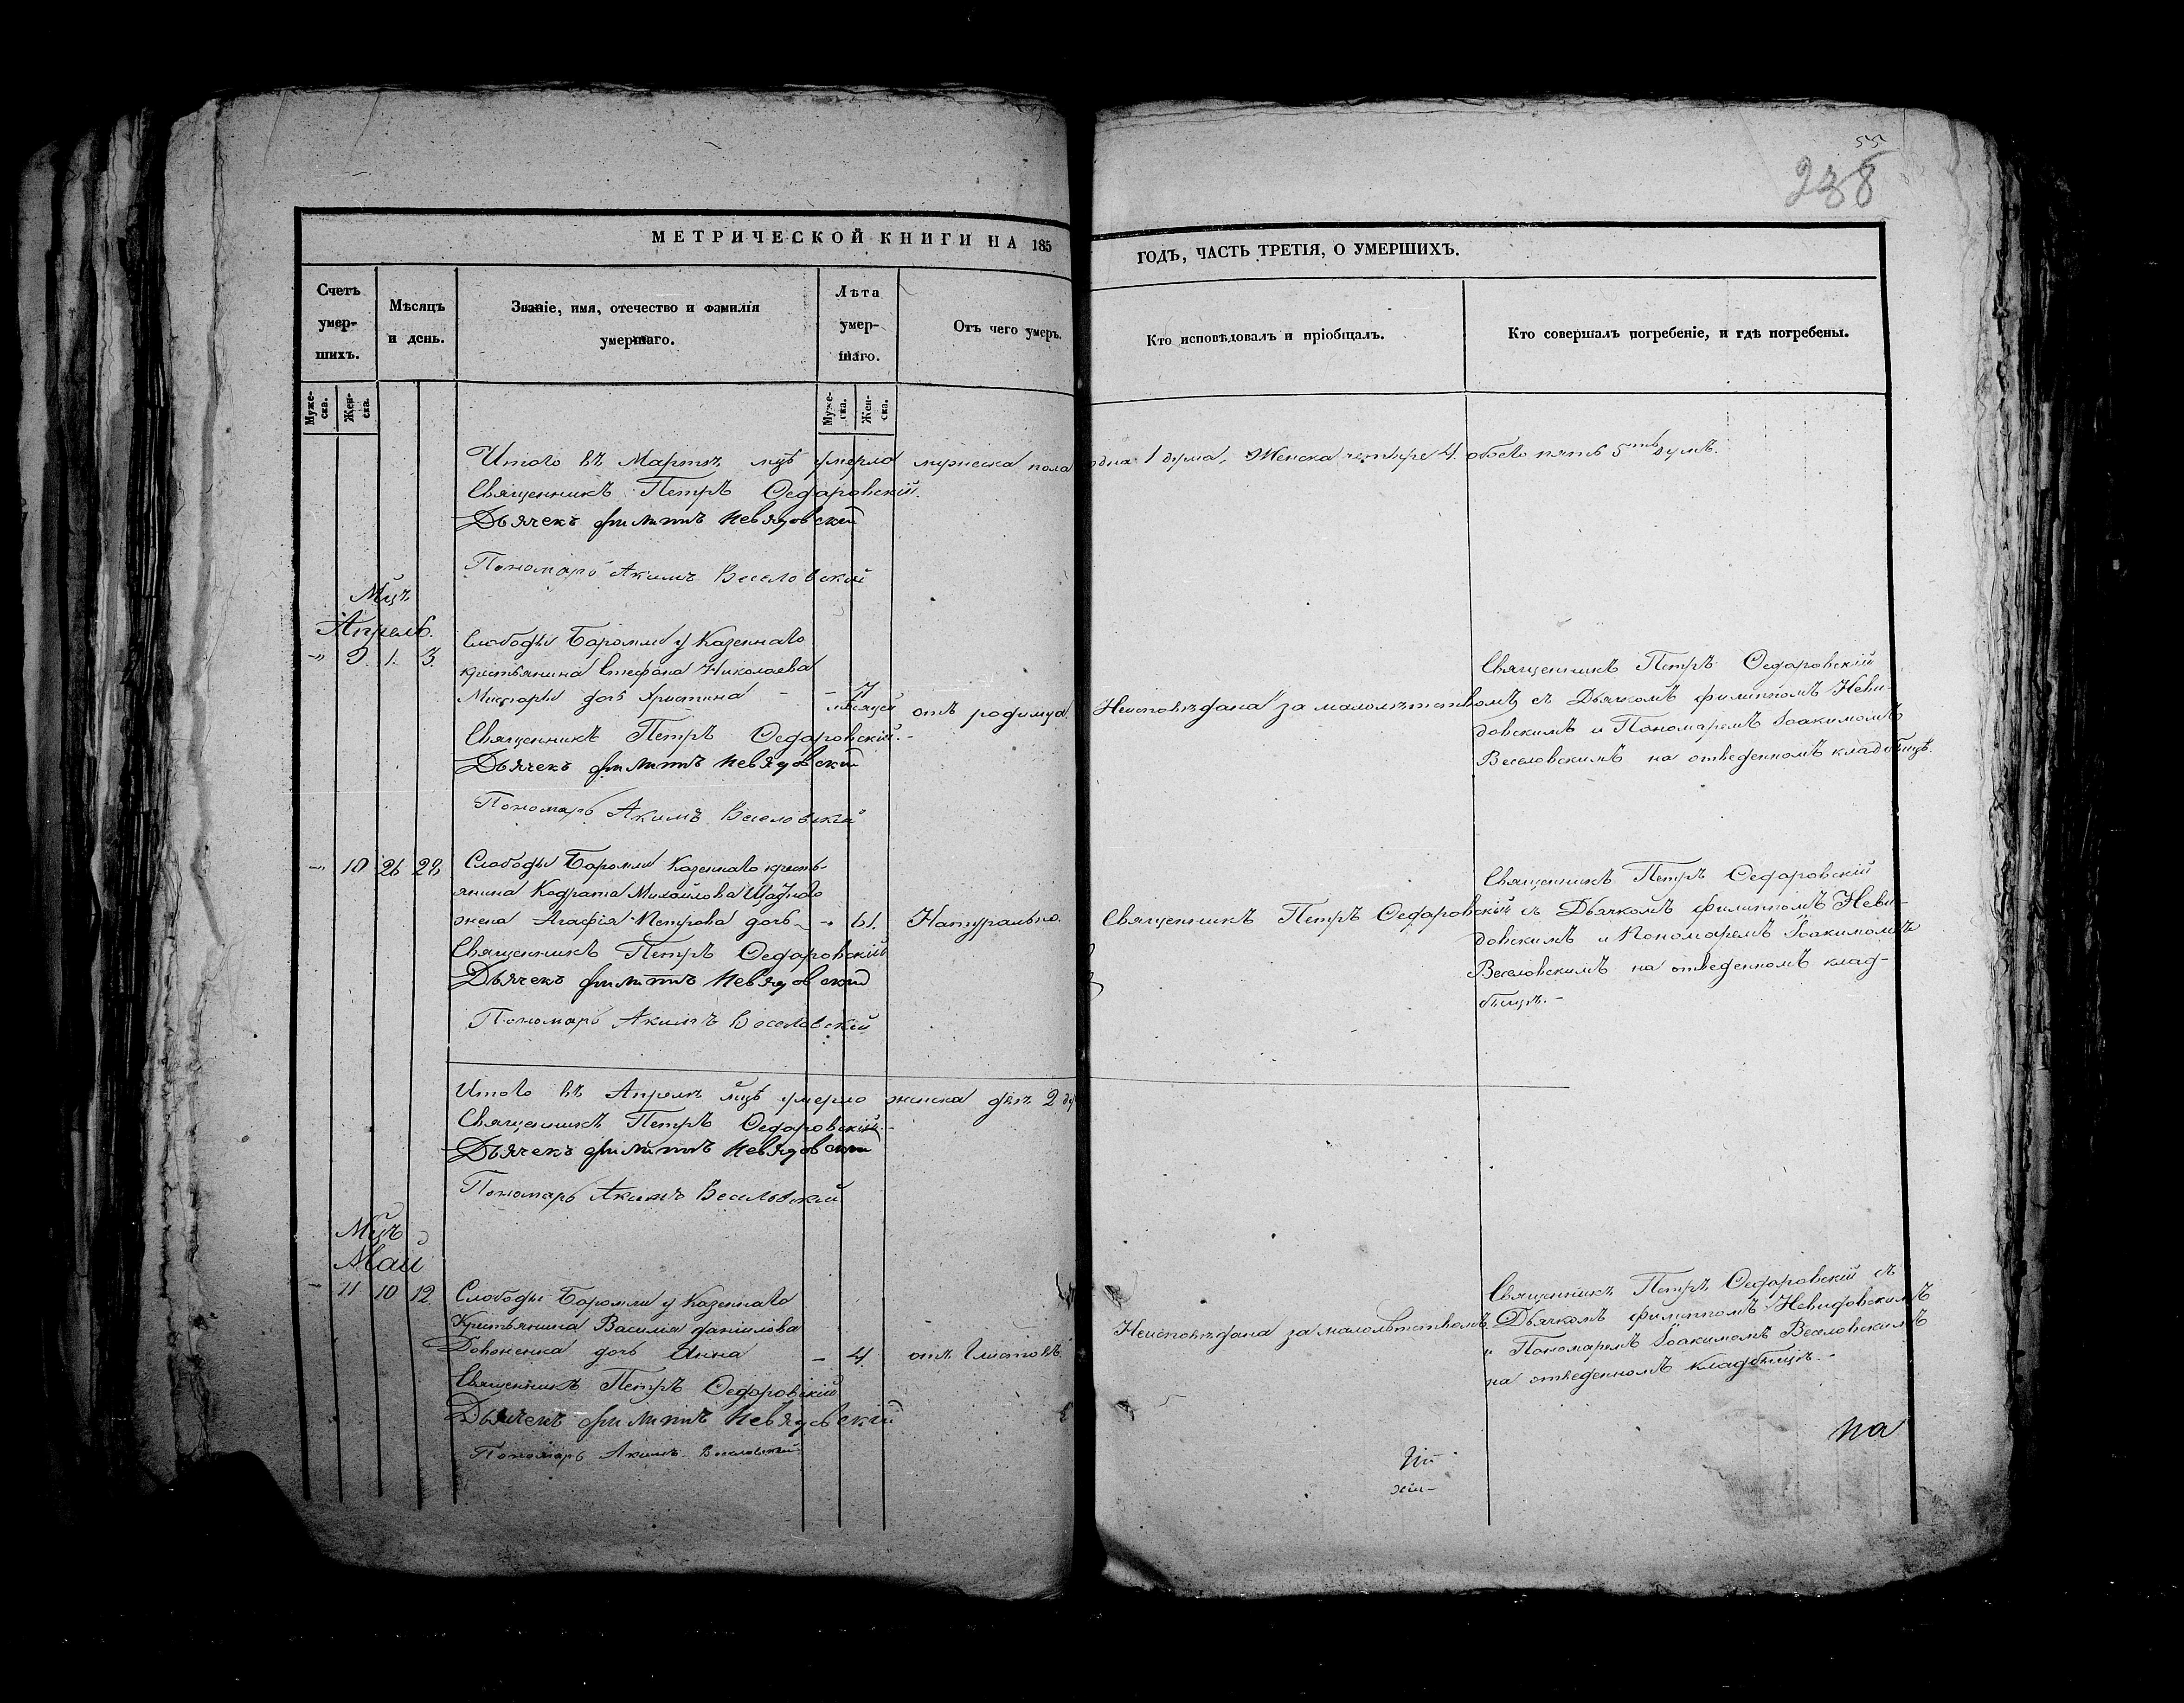 55
238
МЕТРИЧЕСКОЙ КНИГИ НА 185
ГОДЪ, ЧАСТЬ ТРЕТІЯ, О УМЕРШИХЪ.
Счетъ умер-шихъ.
Мѣсяцъ и день.
Званіе, имя, отечество и фамилія умершаго.
Лѣта умер-шаго.
Отъ чего умеръ.
Кто исповѣдовалъ и пріобщалъ.
Кто совершалъ погребеніе, и гдѣ погребены.
Муже-ска.
Жен-ска.
Муже-ска.
Жен-ска.
Итого въ Мартѣ мцѣ умерло мужеска пола одна 1 душа, Женска четыре 4. обоего пять 5ть душъ.
Священникъ Петръ Федоровскій.
Дьячекъ филиппъ Невядовский
Пономарь Акимъ Веселовский
Мцъ
Апрель.
" 9. 1. 3.
Слободы Боромли у Казеннаго
крестьянина Стефана Николаева
дочь Христина - - 7 месяцей
отъ родимца.
Неисповѣдана за малолѣтствомъ
Священникъ Петръ Федоровскій
съ Дьячкомъ филиппомъ Неви-
довскимъ и Пономаремъ Іоакимомъ
Веселовскимъ на отведенномъ кладбищѣ.
Священникъ Петръ Федоровскій.
Дьячекъ филиппъ Невядовский
Пономарь Акимъ Веселовскій
" 10 26 28
Слободы Боромли Казеннаго кресть-
янина Кодрата Михайлова
жена Агафія Петрова дочь - " 61.
Натурально.
Священникъ Петръ Федоровскій
Священникъ Петръ Федоровскій
съ Дьячкомъ филиппомъ Неви-
довскимъ и Пономаремъ Іоакимомъ
Веселовскимъ на отведенномъ клад-
бищѣ.-
Священникъ Петръ Федоровскій
Дьячекъ филиппъ Невядовский
Пономарь Акимъ Веселовскій
Итого въ Апрелѣ мцѣ умерло женска двѣ 2
Священникъ Петръ Федоровскій.-
Дьячекъ филиппъ Невядовский
Пономарь Акимъ Веселовский
Мцъ
Май
- 11 10 12
Слободы Боромли у Казеннаго
Крестьянина Василія Даніилова
дочь Анна - 4.
отъ глистовъ.
Неисповѣдана за малолѣтствомъ.
Священникъ Петръ Федоровскій съ
Дьячкомъ филиппомъ Невидовскимъ
и Пономаремъ Іоакимомъ Веселовскимъ
на отведенномъ кладбищѣ.-
Священникъ Петръ Федоровскій
Дьячекъ филиппъ Невядовскій
Пономарь Акимъ Веселовский
на